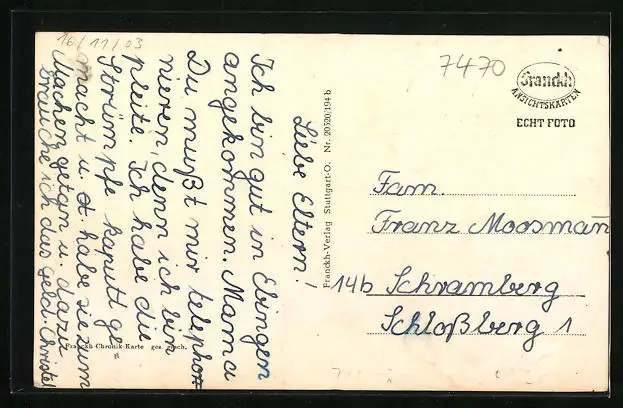 16/11/03
7470
Franckh
ANSICHTSKARTEN
ECHT FOTO
Liebe Eltern!
Ich bin gut in Ebingen
angekommen. Mama
Du mußt mir telephon
nieren, denn ich bin
pleite. Ich habe die
Strümpfe kaputt ge
macht u. habe sie zum
Machen getan u. dazu
brauche ich das Geld. Christel
Franckh-Verlag Stuttgart-O. Nr. 20520/194 b
Franckh-Chronik-Karte ges. gesch.
Fam.
Franz Moosmann
14b Schramberg
Schloßberg 1